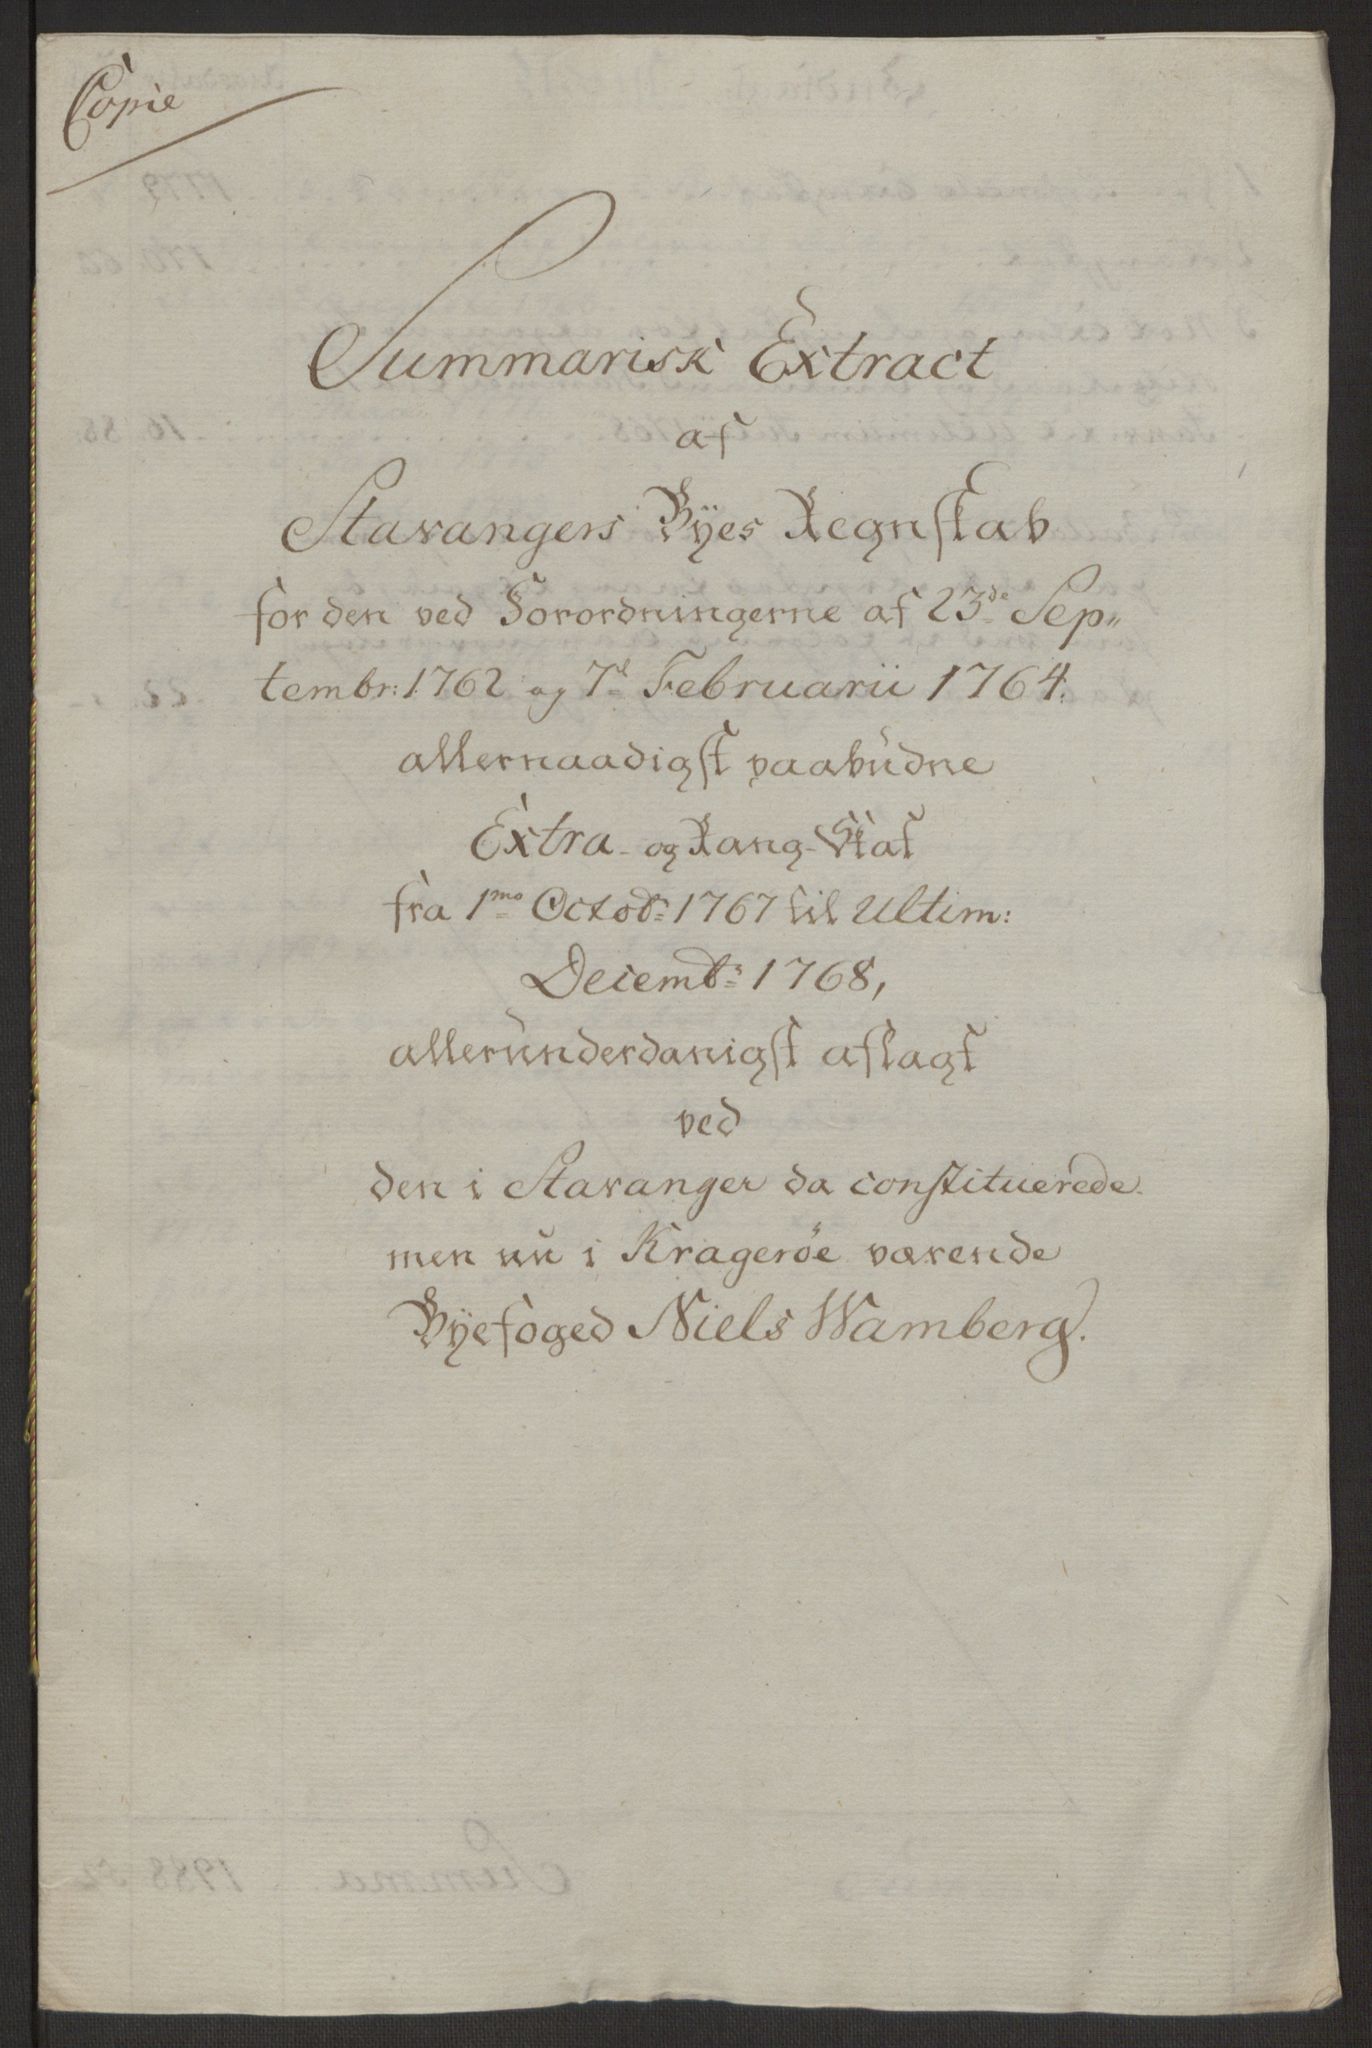 Copie
Summarisk Extract
af
Stavangers Byes Regnskab
for den ved Forordningerne af 23de Sep„
tembr: 1762 og 7de Februarii 1764.
allernaadigst paabudne
Extra- og Rang-Skat
fra 1mo Octobr: 1767 til Ultim:
Decembr: 1768,
allerunderdanigst aflagt
ved
den i Stavanger da constituerede
men nu i Kragerøe værende
Byefoged Niels Wamberg.
Summa 1988 52